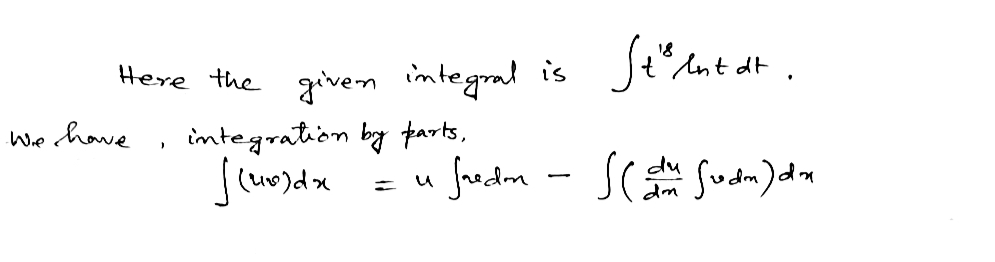 Here the given integral is ∫t¹⁸ ln t dt .
We have , integration by parts,
∫(uv)dx = u ∫vdx − ∫( du/dx ∫vdx)dx